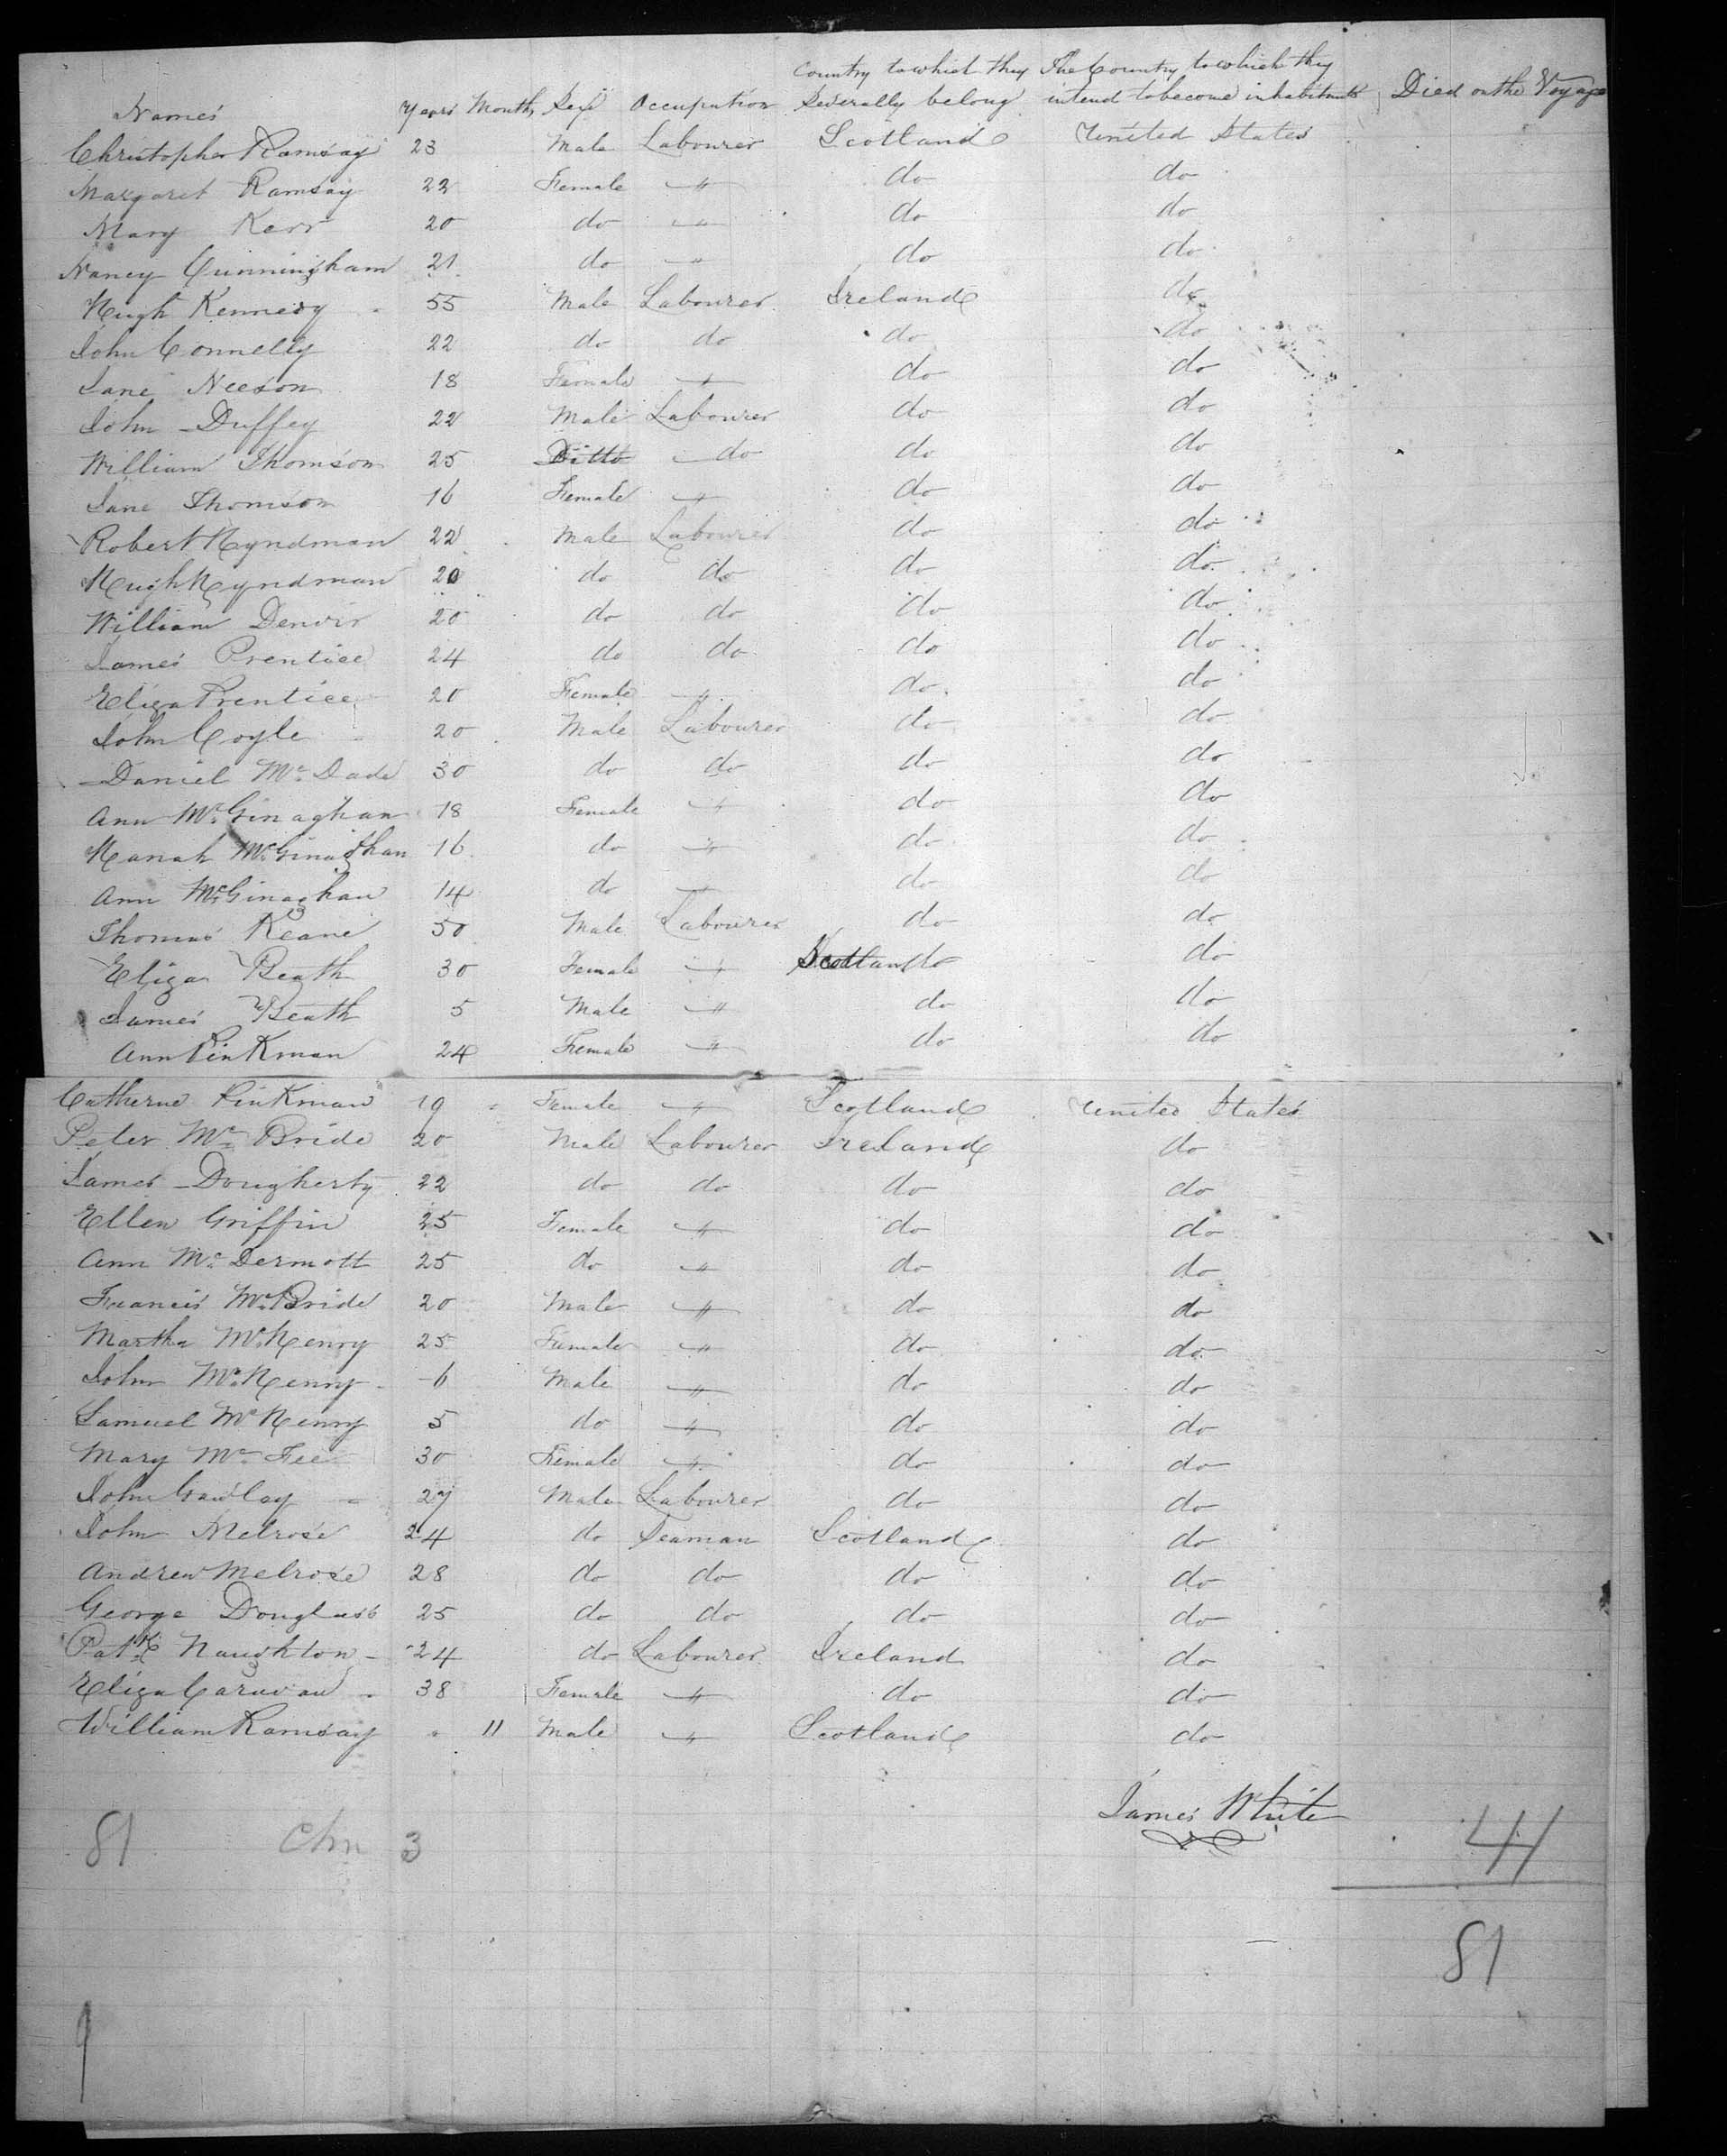 Names Years Months Sex Occupation Country to which they severally belong The Country to which they intend to become inhabitants Died on the Voyage
Christopher Ramsay 23 Male Labourer Scotland United States
Margaret Ramsay 22 Female " do do
Mary Kerr 20 do " do do
Nancy Cunningham 21 do " do do
Hugh Kennedy 55 Male Labourer Ireland do
John Connelly 22 do do do do
Jane Neeson 18 Female " do do
John Duffey 22 Male Labourer do do
William Thomson 25 Ditto do do do
Jane Thomson 16 Female " do do
Robert Hyndman 22 Male Labourer do do
Hugh Hyndman 20 do do do do
William Denvir 20 do do do do
James Prentice 24 do do do do
Eliza Prentice 20 Female " do do
John Coyle 20 Male Labourer do do
Daniel Mc Dade 30 do do do do
Ann McGinaghan 18 Female " do do
Hanah McGinaghan 16 do " do do
Ann McGinaghan 14 do " do do
Thomas Keane 50 Male Labourer do do
Eliza Beath 30 Female " Scotland do do
James Beath 5 Male " do do
Ann Pinkman 24 Female " do do
Catherne Pinkman 19 Female " Scotland United States
Peter Mc Bride 20 Male Labourer Ireland do
James Dougherty 22 do do do do
Ellen Griffin 25 Female " do do
Ann Mc Dermott 25 do " do do
Francis McBride 20 Male " do do
Martha McHenry 25 Female " do do
John McHenry 6 Male " do do
Samuel McHenry 5 do " do do
Mary Mc Fee 30 Female " do do
John Gawley 27 Male Labourer do do
John Melrose 24 do Seaman Scotland do
Andrew Melrose 28 do do do do
George Douglass 25 do do do do
Patk Naughton 24 do Labourer Ireland do
Eliza Caravan 38 Female " do do
William Ramsay " 11 Male " Scotland do
James White
81 Chn 3 41
81
9